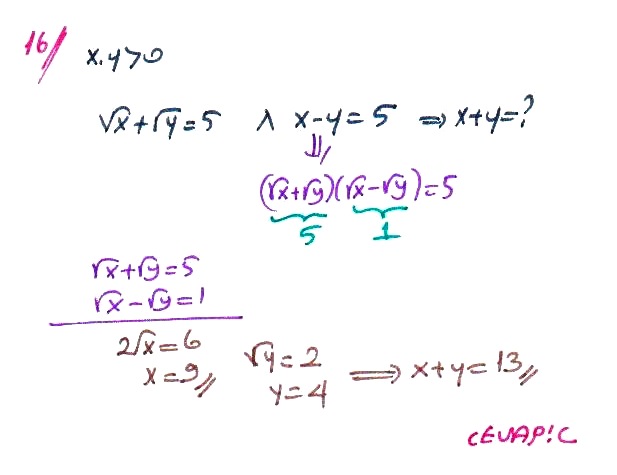 16/ x.y>0
√x+√y=5 ∧ x-y=5 ⇒ x+y=?
⇓
(√x+√y)(√x-√y)=5
5 1
√x+√y=5
√x-√y=1
2√x=6 √y=2
x=9// y=4 ⟹ x+y=13//
CEVAP:C